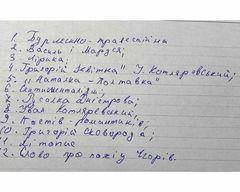 1. Бурлескно-травестійна
2. Василь і Маруся;
3. Лірика;
4. Григорій Квітка" І. Котляревський;
5. "Наталка - Полтавка"
6. Сентименталізм;
7. Русалка Дністрова;
8. Іван Котляревський;
9. Поетів - романтиків;
10. Григорій Сковорода;
11. Літопис
12. Слово про похід Ігорів.